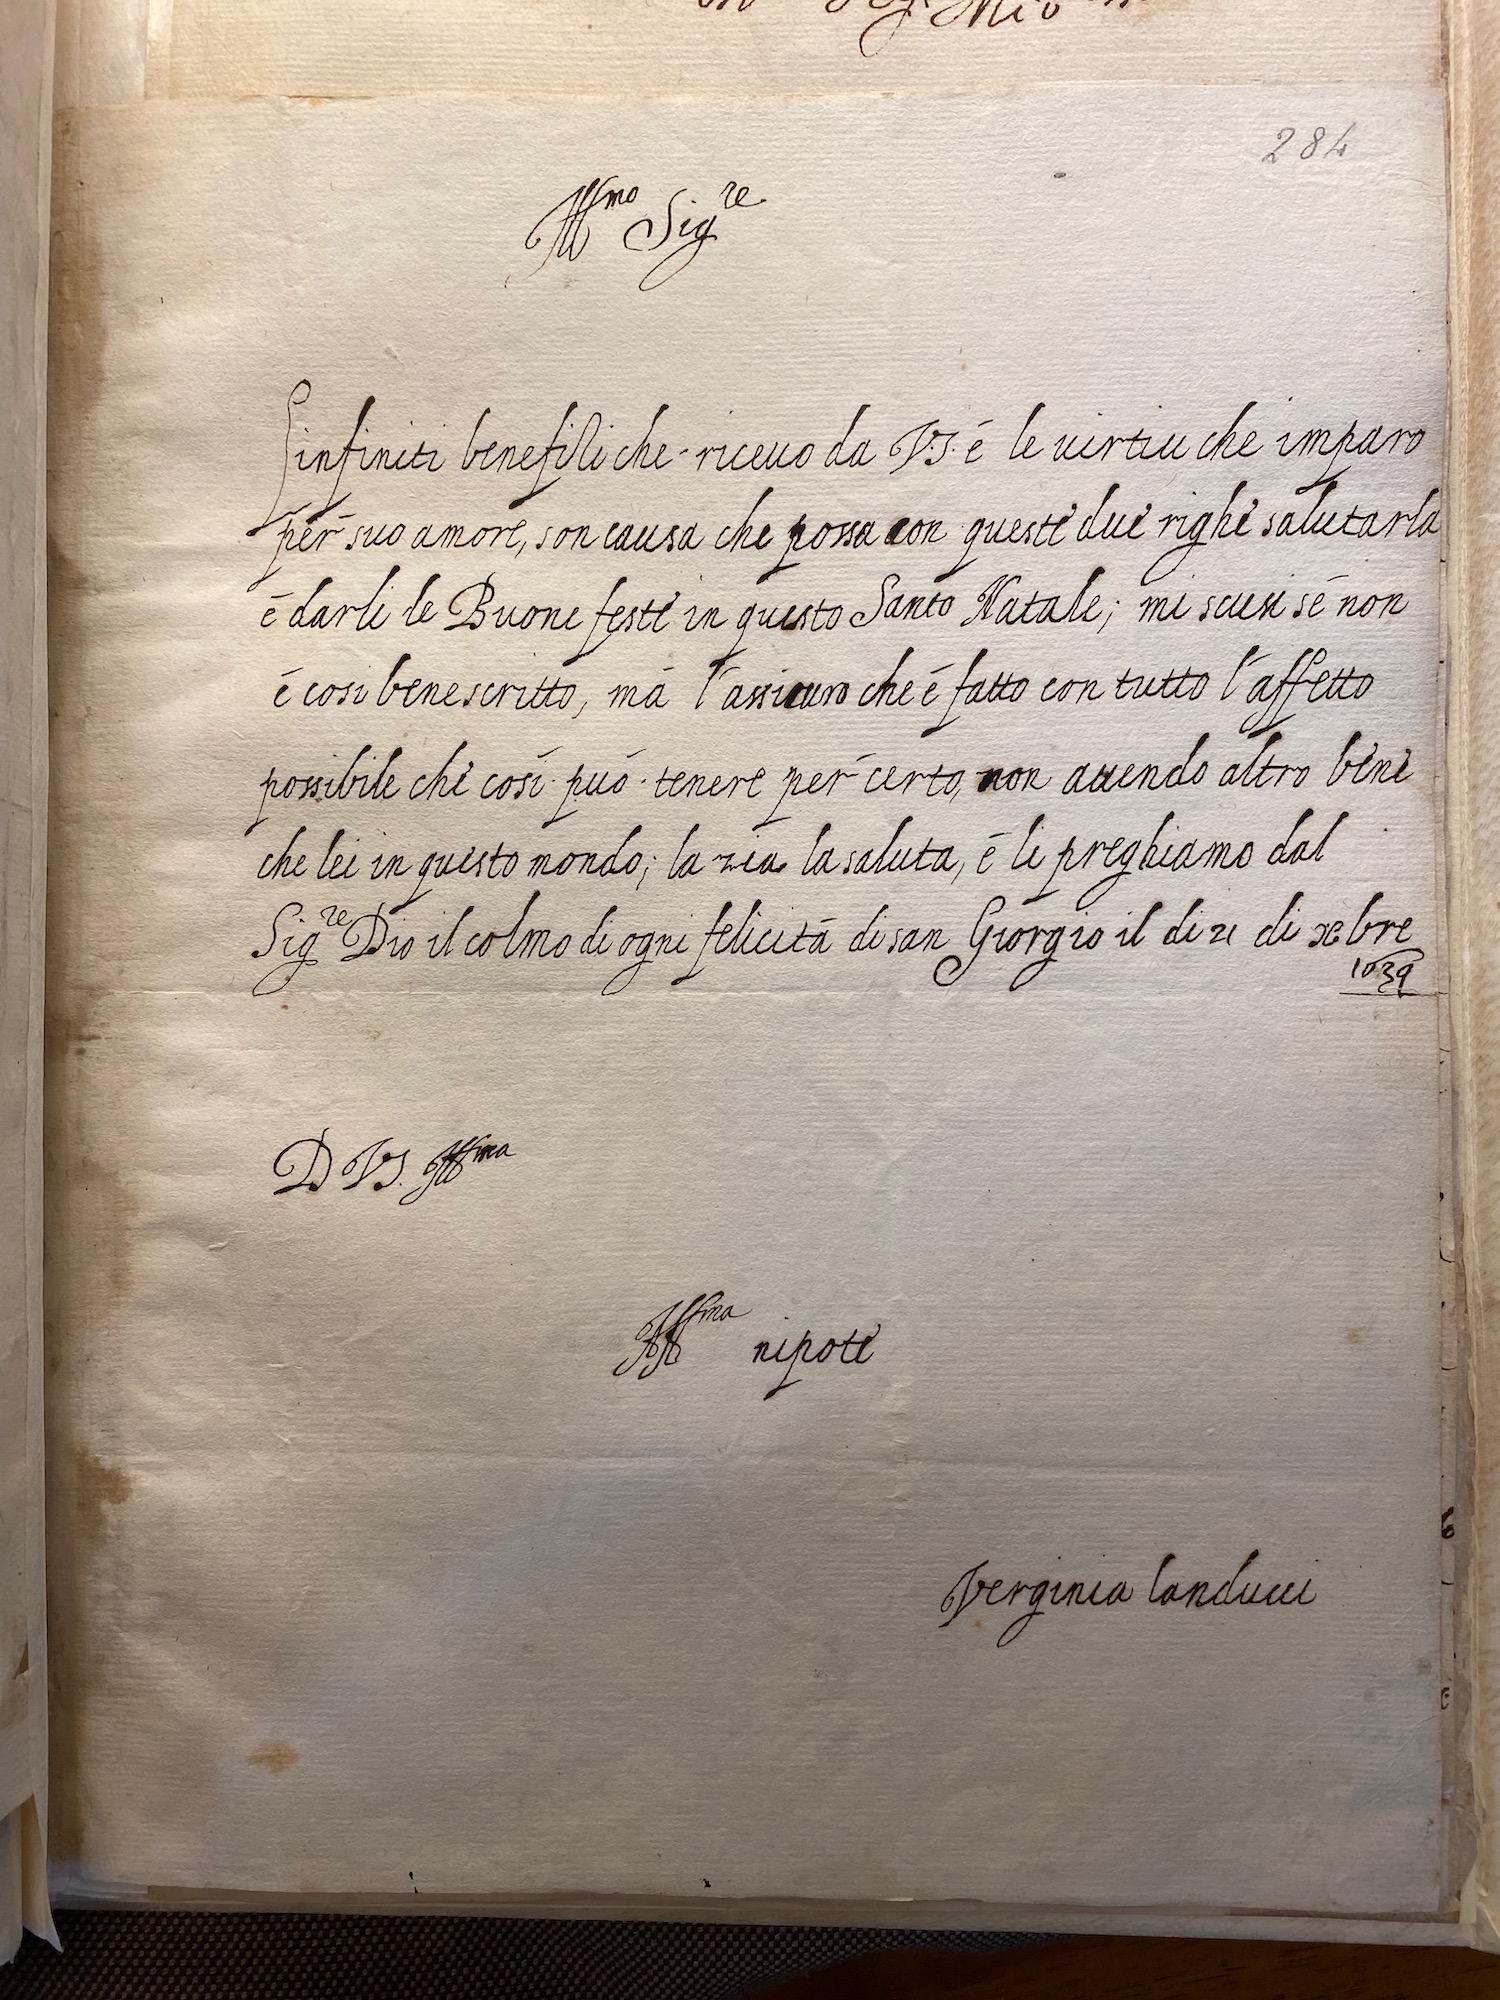 284
Ill.mo Sig.re
Gl'infiniti benefizi che riceuo da V.S. é le uirtiu che imparo
per suo amore, son causa che possa con queste due righe salutarla
é darli le Buone feste in questo Santo Natale; mi scusi sé non
é cosi bene scritto, má l'assicuro che é fatto con tutto l'affetto
possibile che cosí può tenere per certo, non auendo altro bene
che lei in questo mondo; la zia la saluta, é li preghiamo dal
Sig.re Dio il colmo di ogni felicitá di san Giorgio il di 21 di xbre
1639
D V.S. Ill.ma
Aff.ma nipote
Verginia landucci